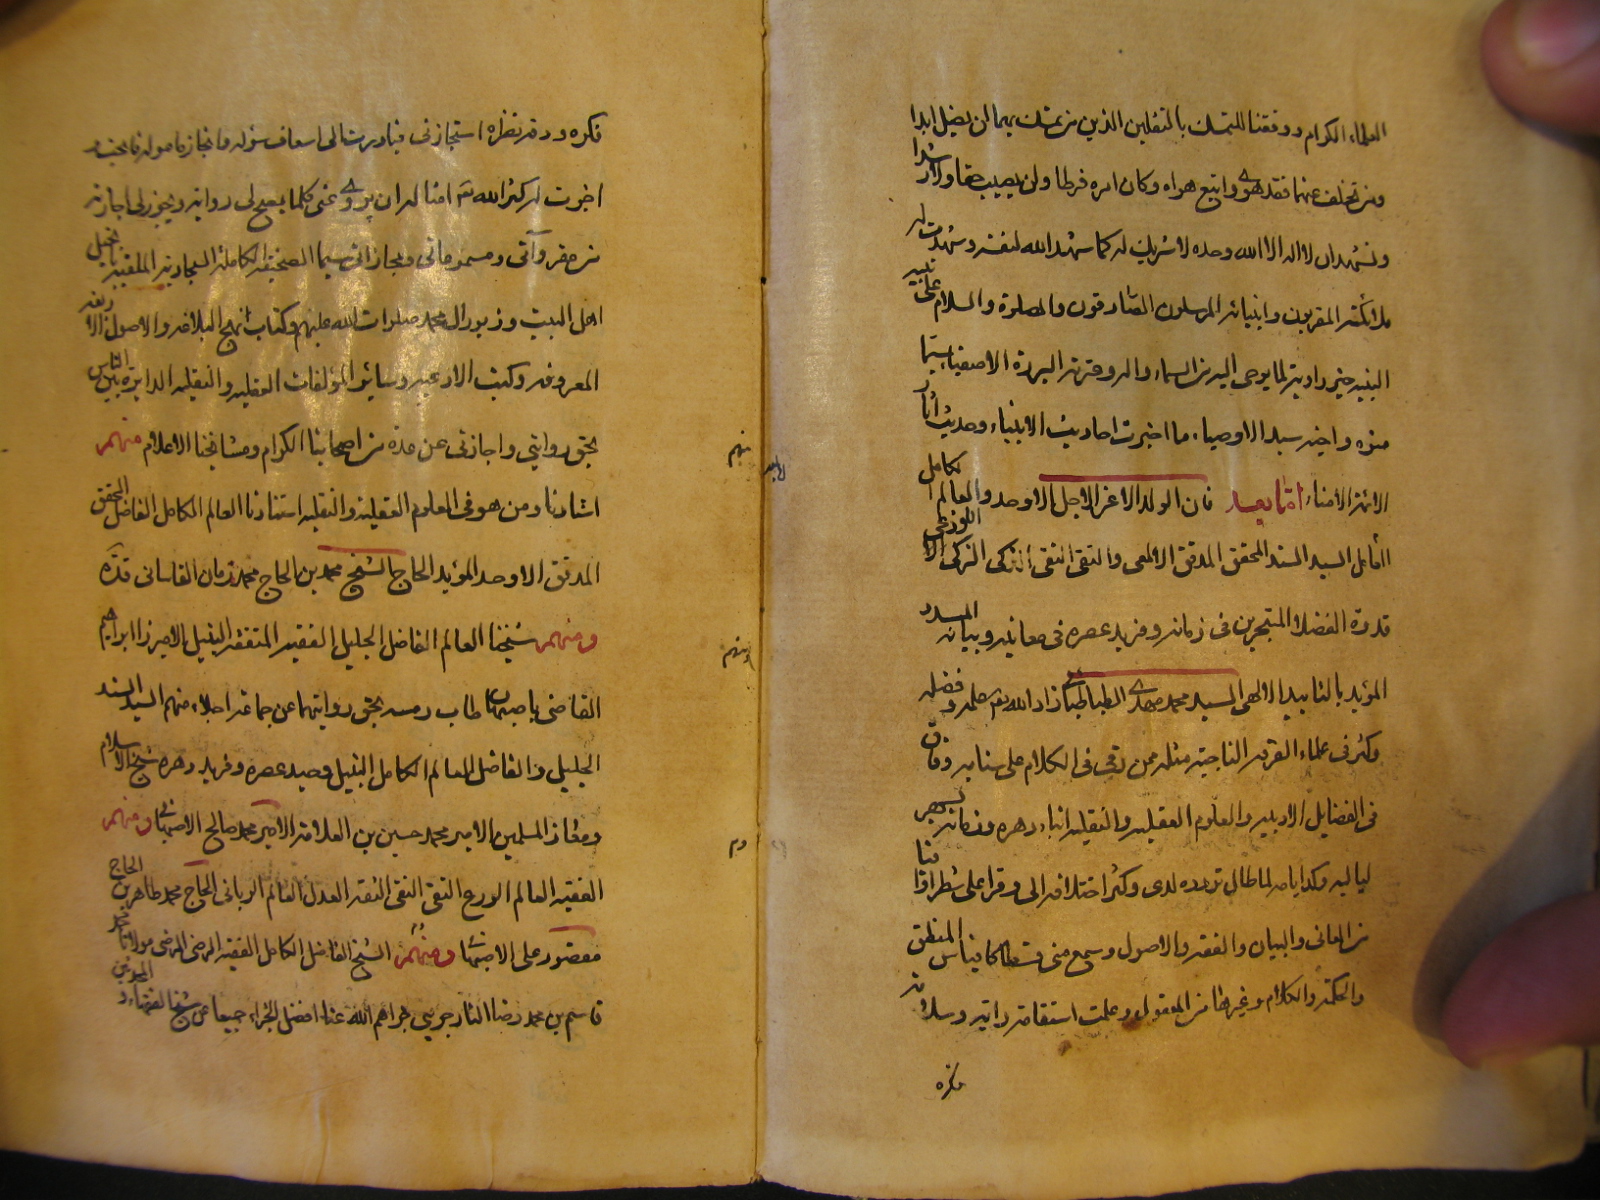 العلماء الكرام ووفقنا للتمسك بالثقلين الذين من تمسك بهما لن يضل ابدا
ومن تخلف عنهما فقد هوى واتبع هواه وكان امره فرطا ولن يصيب حقا ولا رشدا
ونشهد ان لا اله الا الله وحده لا شريك له كما شهد الله لنفسه وشهدت له
ملائكته المقربون وانبيائه المرسلون الصادقون والصلوة والسلام على نبيه
النبيه خير راوية لما يوحى اليه من السماء واله وعترته البررة الاصفياء سيما
صنوه واخيه سيد الاوصياء ما اخبرت احاديث الانبياء وحديث اثار
الائمة الامناء اما بعد فان الولد الاعز الاجل الاوحد والعالم الكامل
الفاضل السيد السند المحقق المدقق الالمعي والتقى النقى الزكى اللوذعى
قدوة الفضلاء المتبحرين فى زمانه وفريد عصره فى معانيه وبيانه المسدد
المؤيد بالتاييد الالهى السيد محمد مهدى الطباطبائى زاد الله تع علمه وفضله
وكثر فى علماء الفرقة الناجية مثله ممن رقى فى الكلام على سنامه وفاق
فى الفضايل الادبيه والعلوم العقليه والنقليه ابناء دهره وزمانه بسهر
لياليه وكد ايامه لما طال تردده لدى وكثر اختلافه الى وقرا على شطرا وافيا
من المعانى والبيان والفقه والاصول وسمع منى قسطا كافيا من المنطق
والحكمة والكلام وغيرها من المعقول وعلمت استقامة رايه وسلامة
فكره
فكره ودقة نظره استجازنى فبادرت الى اسعاف سؤله وانجاز مامولة
اجزت له كثر الله تع امثاله ان يروى عنى كلما يصح لى روايته ويجوز لى اجازته
من مقرواتى ومسموعاتى ومجازاتى سيما الصحيفه الكاملة السجادية الملقبة بانجيل
اهل البيت وزبور ال محمد صلوات الله عليهم وكتاب نهج البلاغه والاصول الاربعه
المعروفه وكتب الادعيه وسائر المؤلفات العقليه والنقليه الدايرة بين الناس
بحق روايتى واجازتى عن عدة من اصحابنا الكرام ومشايخنا الاعلام منهم
استادنا ومن هو فى العلوم العقلية والنقليه استنادنا العالم الكامل الفاضل المحقق
المدقق الاوحد المؤيد الحاج الشيخ محمد بن الحاج محمد زمان القاسانى قده
ومنهم شيخنا العالم الفاضل الجليل الفقيه المتفقه النبيل الاميرزا ابراهيم
القاضى باصبهان طاب رمسه بحق روايتهما عن جماعة اجلاء منهم السيد السند
الجليل والفاضل العالم الكامل النبيل وحيد عصره وفريد دهره شيخ الاسلام
ومفاز المسلمين الامير محمد حسين بن العلامة الامير محمد صالح الاصبهانى ومنهم
الفقيه العالم الورع التقى النقى الثقه العدل العالم الربانى الحاج محمد طاهر بن الحاج
مقصود على الاصبهانى ومنهم الشيخ الفاضل الكامل الفقيه الرضى المرضى مولانا محمد
قاسم بن محمد رضا جزاهم الله عنا افضل الجزاء جميعا عن شيخ الفقهاء والمحدثين
منهم
ومنهم